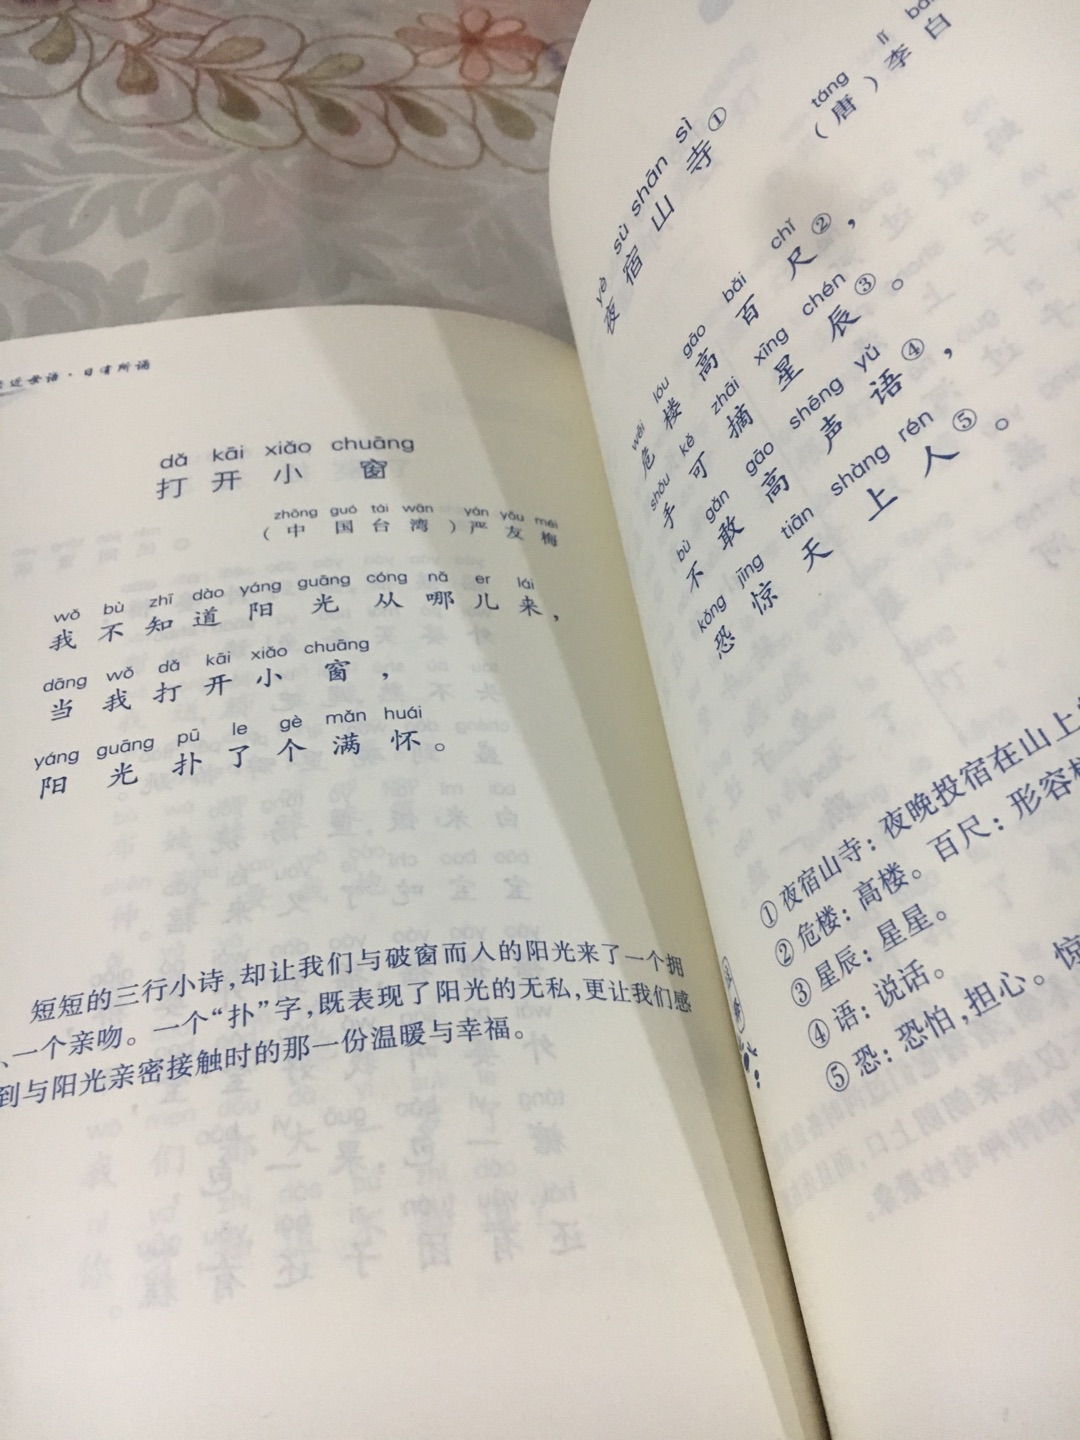 近母语·日有所诵
dǎ kāi xiǎo chuāng
打开小窗
zhōng guó tái wān yán yǒu méi
（中国台湾）严友梅
wǒ bù zhī dào yáng guāng cóng nǎ er lái
我不知道阳光从哪儿来，
dāng wǒ dǎ kāi xiǎo chuāng
当我打开小窗，
yáng guāng pū le gè mǎn huái
阳光扑了个满怀。
短短的三行小诗，却让我们与破窗而入的阳光来了一个拥
、一个亲吻。一个“扑”字，既表现了阳光的无私，更让我们感
到与阳光亲密接触时的那一份温暖与幸福。
yè sù shān sì
夜宿山寺①
táng lǐ bái
（唐）李白
wēi lóu gāo bǎi chǐ
危楼高百尺②，
shǒu kě zhāi xīng chén
手可摘星辰③。
bù gǎn gāo shēng yǔ
不敢高声语④，
kǒng jīng tiān shàng rén
恐惊天上人⑤。
①夜宿山寺：夜晚投宿在山上
②危楼：高楼。百尺：形容
③星辰：星星。
④语：说话。
⑤恐：恐怕，担心。惊